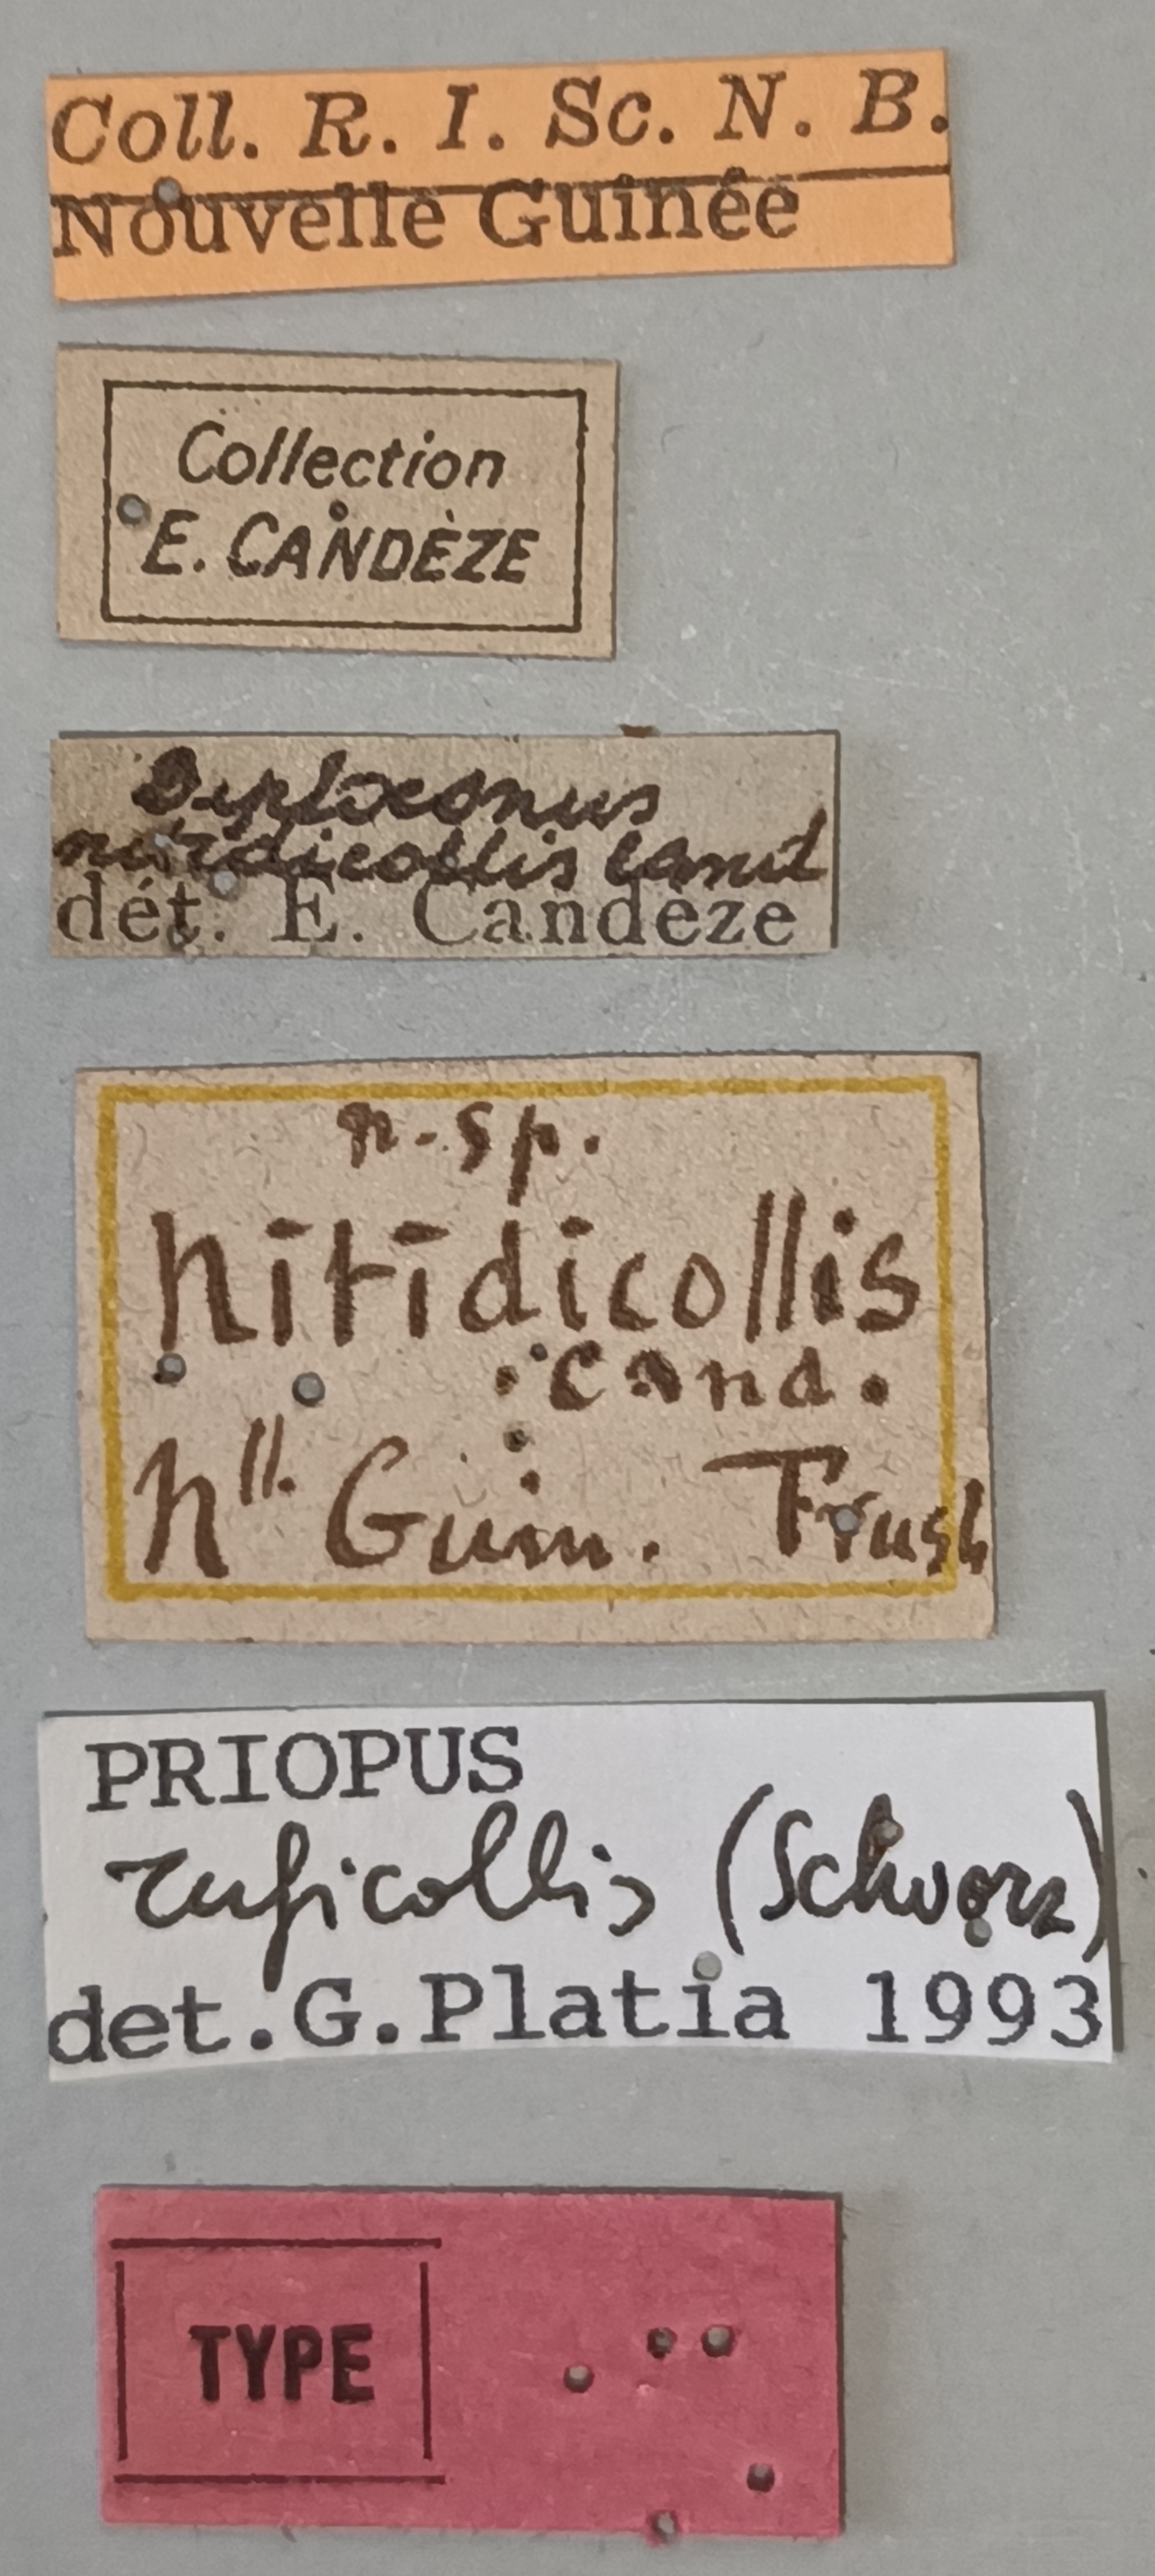 Coll. R. I. Sc. N. B.
Nouvelle Guinée
Collection
E. CANDÈZE
Diploconus
nitidicollis Cand
dét. E. Candèze
n. sp.
nitidicollis
Cand.
Nll. Guin.
PRIOPUS
ruficollis (Schwarz)
det.G.Platia 1993
TYPE